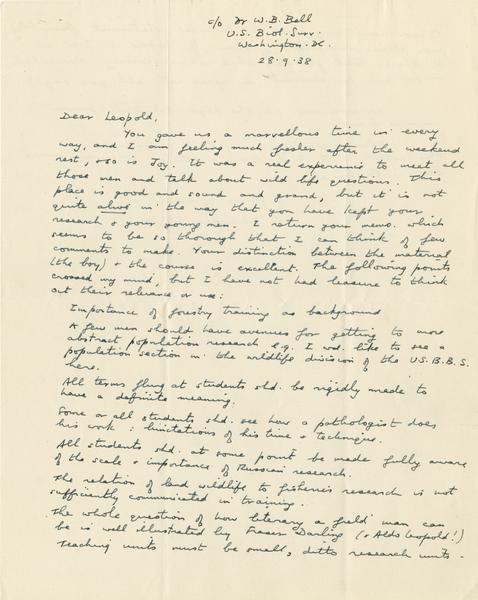 c/o Dr W.B. Bell
U.S. Biol. Surv.
Washington. DC.
28.9.38
Dear Leopold,
You gave us a marvellous time in every
way, and I am feeling much fresher after the weekend
rest, & so is Joy. It was a real experience to meet all
those men and talk about wild life questions. This
place is good and sound and grand, but it is not
quite alive in the way that you have kept your
research & your young men. I return your memo. which
seems to be so thorough that I can think of few
comments to make. Your distinction between the material
(the boy) & the course is excellent. The following points
crossed my mind, but I have not had leasure to think
out their relevance or use:
Importance of forestry training as background
A few men should have avenues for getting to more
abstract population research e.g. I wd. like to see a
population section in the wildlife division of the U.S.B.B.S.
here.
All terms flung at students shd. be rigidly made to
have a definite meaning.
Some or all students shd. see how a pathologist does
his work : limitations of his time & technique.
All students shd. at some point be made fully aware
of the scale & importance of Russian research.
The relation of land wildlife to fisheries research is not
sufficiently communicated in training.
The whole question of how literary a field man can
be is well illustrated by Fraser Darling (& Aldo Leopold!)
Teaching units must be small, ditto research units.